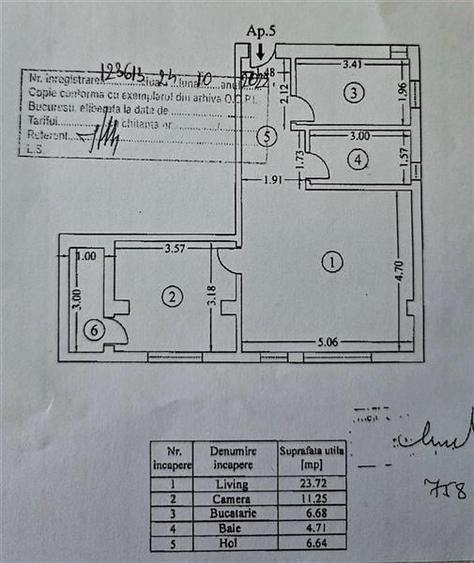 Ap.5
123613 24 10 2023
Nr. inregistrare ziua luna anul
Copie conforma cu exemplarul din arhiva O.C.P.I.
Bucuresti, eliberata la data de
Tariful chitanta nr.
Referent
L.S.
.48
3.41
2.12
3
1.96
5
3.00
1.73
4
1.57
1.91
1.00
3.57
1
4.70
3.00
2
3.18
6
5.06
758
Nr. incapere Denumire incapere Suprafata utila [mp]
1 Living 23.72
2 Camera 11.25
3 Bucatarie 6.68
4 Baie 4.71
5 Hol 6.64